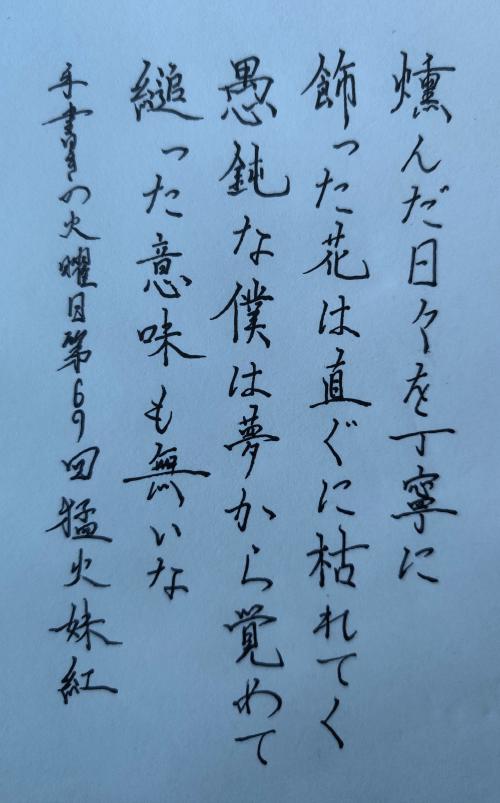 燻んだ日々を丁寧に
飾った花は直ぐに枯れてく
愚鈍な僕は夢から覚めて
縋った意味も無いな
手書きの火曜日第69回猛火妹紅